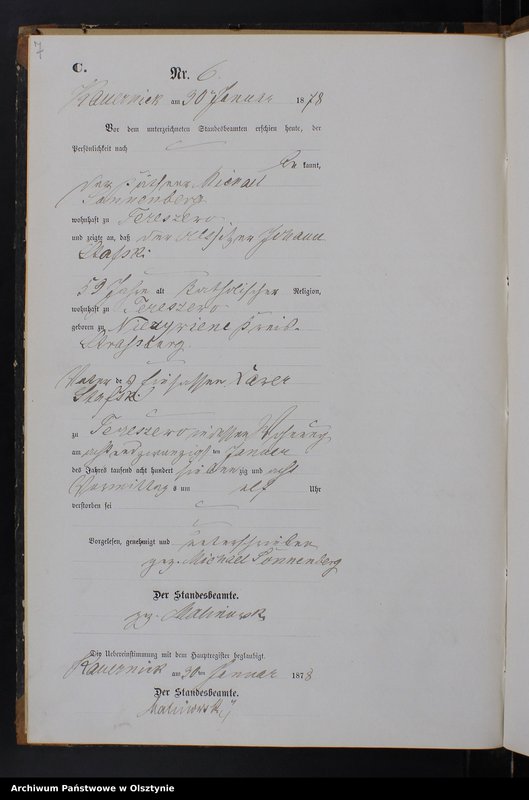 7
C.
Nr. 6.
Kauernick am 30 Januar 1878
Vor dem unterzeichneten Standesbeamten erschien heute, der
Persönlichkeit nach
be kannt,
der Michael
Sonnenberg
wohnhaft zu Tereszewo
und zeigte an, daß der Johann
59 Jahre alt katholischer Religion,
wohnhaft zu Tereszewo
geboren zu Kreis
Straßburg
Vater des Einsassen Xaver
zu Tereszewo in dessen Wohnung
am acht und zwanzigsten Januar
des Jahres tausend acht hundert siebenzig und acht
Vormittag s um elf Uhr
verstorben sei
Vorgelesen, genehmigt und unterschrieben
gez. Michael Sonnenberg
Der Standesbeamte.
gez. Malinowski
Die Uebereinstimmung mit dem Hauptregister beglaubigt.
Kauernick am 30ten Januar 1878
Der Standesbeamte.
Malinowski
Archiwum Państwowe w Olsztynie